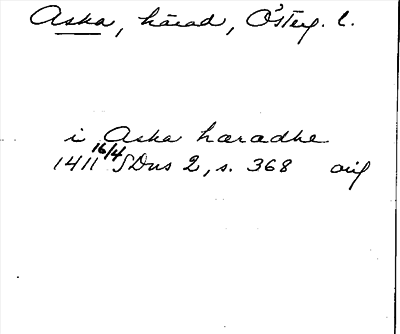 Aska, härad, Österg. l.
i Aska haradhe
1411 16/4 SDns 2, s. 368 orig